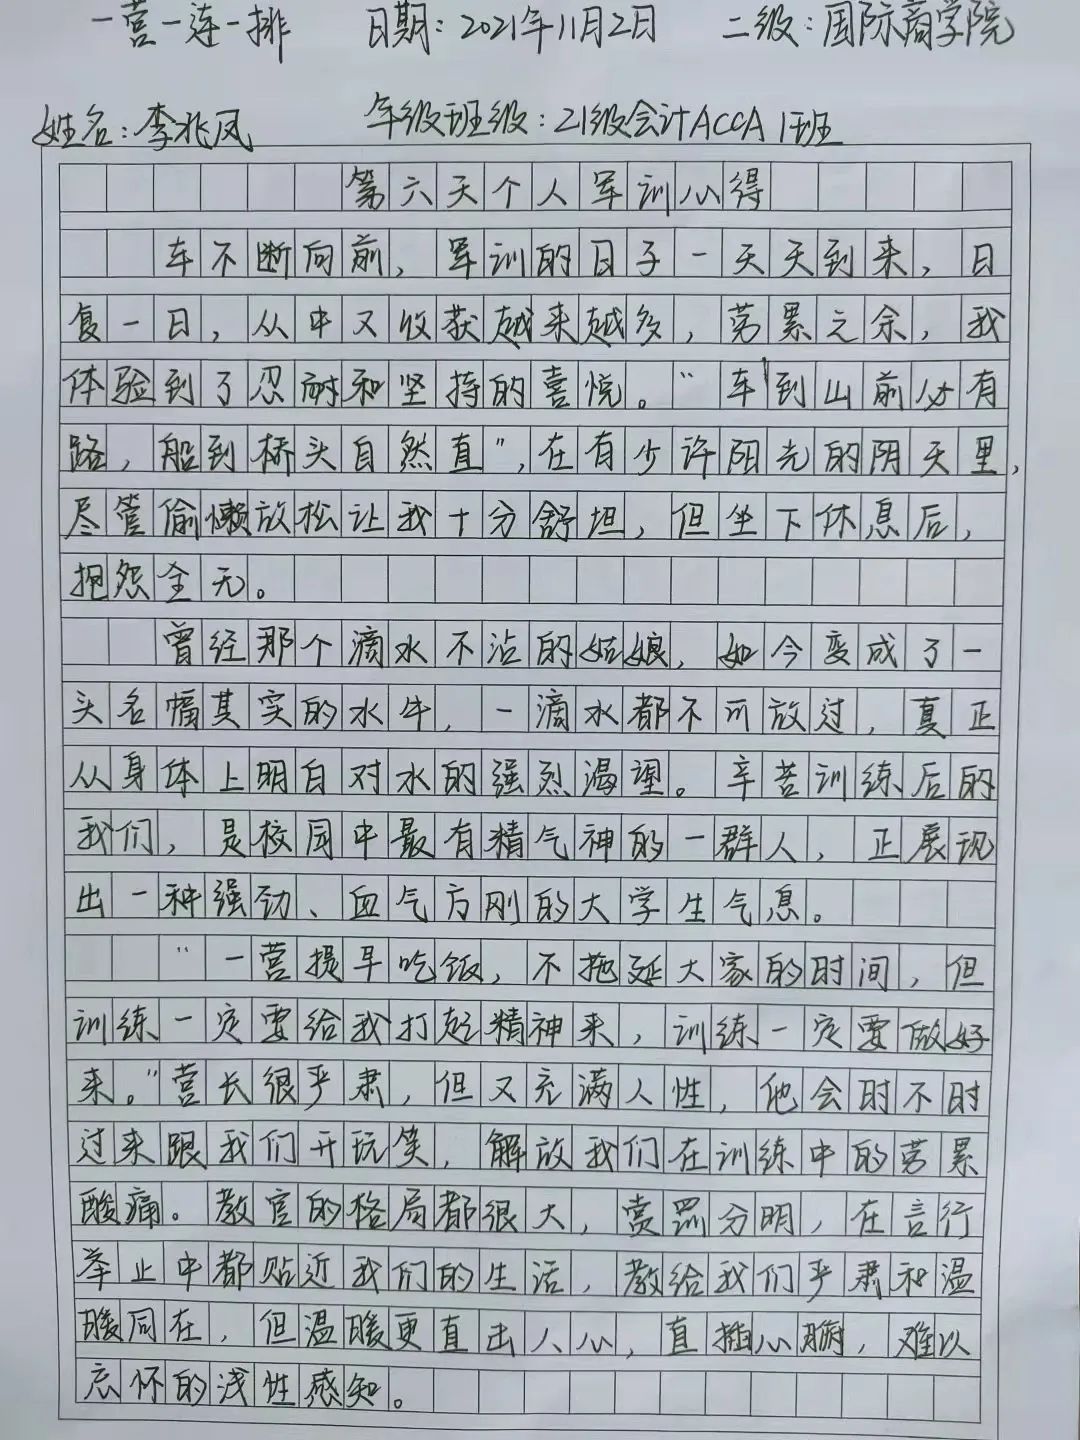 一营一连一排 日期：2021年11月2日 二级：国际商学院
姓名：李兆凤 年级班级：21级会计ACCA1班
第六天个人军训心得
车不断向前，军训的日子一天天到来，日
复一日，从中又收获越来越多，劳累之余，我
体验到了忍耐和坚持的喜悦。“车到山前必有
路，船到桥头自然直”，在有少许阳光的阴天里，
尽管偷懒放松让我十分舒坦，但坐下休息后，
抱怨全无。
曾经那个滴水不沾的姑娘，如今变成了一
头名幅其实的水牛，一滴水都不可放过，真正
从身体上明白对水的强烈渴望。辛苦训练后的
我们，是校园中最有精气神的一群人，正展现
出一种强劲、血气方刚的大学生气息。
“一营提早吃饭，不拖延大家的时间，但
训练一定要给我打起精神来，训练一定要做好
来。”营长很严肃，但又充满人性，他会时不时
过来跟我们开玩笑，解放我们在训练中的劳累
酸痛。教官的格局都很大，赏罚分明，在言行
举止中都贴近我们的生活，教给我们严肃和温
暖同在，但温暖更直击人心，直插心脯，难以
忘怀的浅性感知。